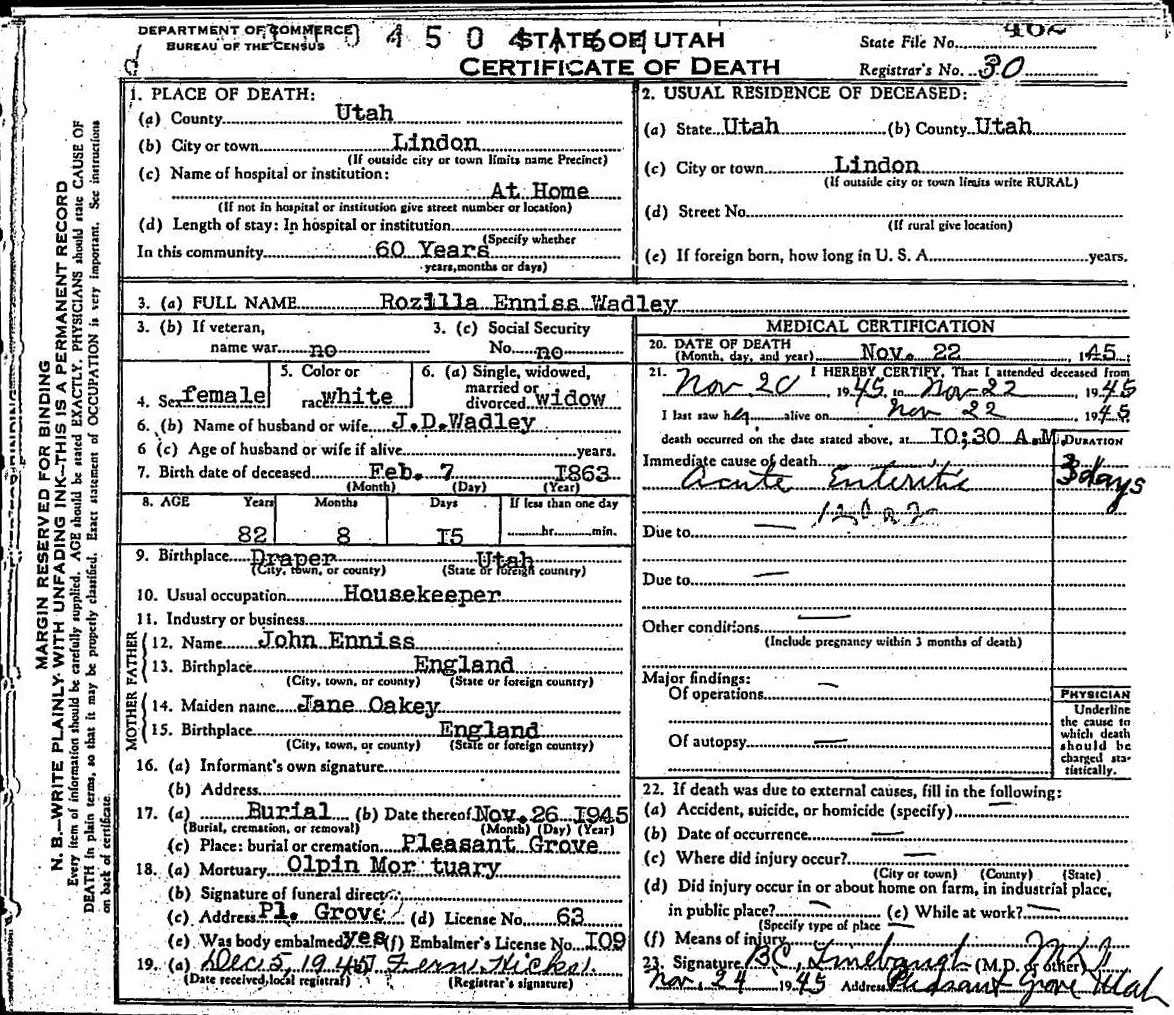 DEPARTMENT OF COMMERCE
BUREAU OF THE CENSUS
STATE OF UTAH
CERTIFICATE OF DEATH
State File No.
Registrar's No. 30
MARGIN RESERVED FOR BINDING
N. B.—WRITE PLAINLY WITH UNFADING INK—THIS IS A PERMANENT RECORD
Every item of information should be carefully supplied. AGE should be stated EXACTLY. PHYSICIANS should state CAUSE OF
DEATH in plain terms, so that it may be properly classified. Exact statement of OCCUPATION is very important. See instructions
on back of certificate.
1. PLACE OF DEATH:
(a) County Utah
(b) City or town Lindon
(If outside city or town limits name Precinct)
(c) Name of hospital or institution:
At Home
(If not in hospital or institution give street number or location)
(d) Length of stay: In hospital or institution
(Specify whether
In this community 60 Years
years, months or days)
2. USUAL RESIDENCE OF DECEASED:
(a) State Utah (b) County Utah
(c) City or town Lindon
(If outside city or town limits write RURAL)
(d) Street No.
(If rural give location)
(e) If foreign born, how long in U. S. A. years.
3. (a) FULL NAME Rozilla Enniss Wadley
3. (b) If veteran, 3. (c) Social Security
name war no No. no
4. Sex female 5. Color or race white 6. (a) Single, widowed, married or divorced widow
6. (b) Name of husband or wife J.D.Wadley
6 (c) Age of husband or wife if alive years.
7. Birth date of deceased Feb. 7 I863
(Month) (Day) (Year)
8. AGE Years Months Days If less than one day
82 8 I5 hr. min.
9. Birthplace Draper Utah
(City, town, or county) (State or foreign country)
10. Usual occupation Housekeeper
11. Industry or business
FATHER
12. Name John Enniss
13. Birthplace England
(City, town, or county) (State or foreign country)
MOTHER
14. Maiden name Jane Oakey
15. Birthplace England
(City, town, or county) (State or foreign country)
16. (a) Informant's own signature
(b) Address
17. (a) Burial (b) Date thereof Nov. 26 I945
(Burial, cremation, or removal) (Month) (Day) (Year)
(c) Place: burial or cremation Pleasant Grove
18. (a) Mortuary Olpin Mor tuary
(b) Signature of funeral director
(c) Address Pl. Grove (d) License No. 63
(e) Was body embalmed yes (f) Embalmer's License No. I09
19. (a) Dec 5, 1945 Fern Hicks
(Date received, local registrar) (Registrar's signature)
MEDICAL CERTIFICATION
20. DATE OF DEATH
(Month, day, and year) Nov. 22, 145
21. I HEREBY CERTIFY, That I attended deceased from
Nov 20, 1945, to Nov 22, 1945
I last saw her alive on Nov 22 1945
death occurred on the date stated above, at I0;30 A.M. DURATION
Immediate cause of death
Acute Enteritis 3 days
Due to —
Due to —
Other conditions —
(Include pregnancy within 3 months of death)
Major findings:
Of operations —
Of autopsy —
PHYSICIAN
Underline
the cause to
which death
should be
charged sta-
tistically.
22. If death was due to external causes, fill in the following:
(a) Accident, suicide, or homicide (specify) —
(b) Date of occurrence —
(c) Where did injury occur? —
(City or town) (County) (State)
(d) Did injury occur in or about home on farm, in industrial place,
in public place? — (e) While at work? —
(Specify type of place —
(f) Means of injury
23. Signature BC Linebaugh (M.D. or other) M D
Nov. 24 1945 Address Pleasant Grove Utah